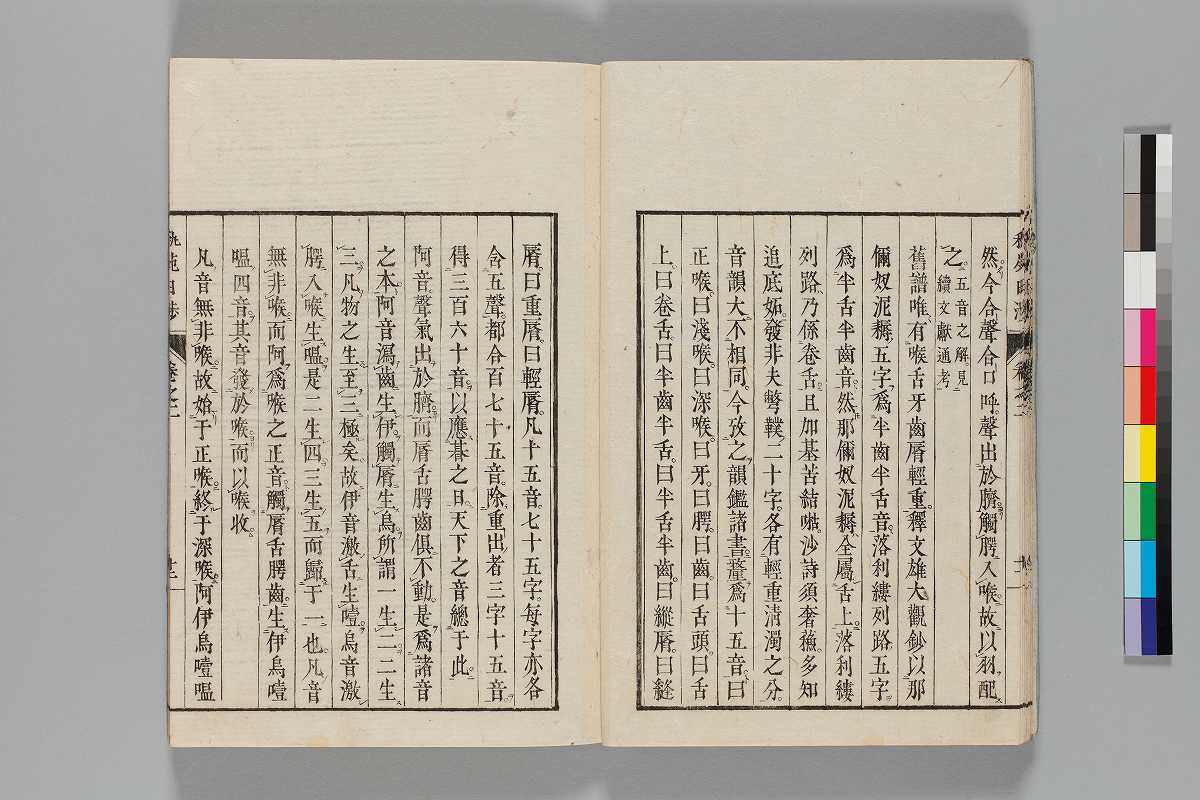 然今合聲合口呼聲出於臍觸腭入喉故以羽配
之五音之解見
續文獻通考
舊譜唯有喉舌牙齒脣輕重釋文雄大觀鈔以那
儞奴泥耨五字爲半齒半舌音落利縷列路五字
爲半舌半齒音然那儞奴泥耨全屬舌上落利縷
列路乃係卷舌且加基苦結 沙詩須奢 多知
追底妬發非夫 二十字各有輕重清濁之分
音韻大不相同今攷之韻鑑諸書 爲十五音曰
正喉曰淺喉曰深喉曰牙曰腭曰齒曰舌頭曰舌
上曰卷舌曰半齒半舌曰半舌半齒曰縱脣曰縫
脣曰重脣曰輕脣凡十五音七十五字每字亦各
含五聲都合百七十五音除重出者三字十五音
得三百六十音以應朞之日天下之音總于此
阿音聲氣出於臍而脣舌腭齒俱不動是爲諸音
之本阿音瀉齒生伊觸脣生烏所謂一生二二生
三凡物之生至三極矣故伊音激舌生噎烏音激
腭入喉生嗢是二生四三生五而歸于一也凡音
無非喉而阿爲喉之正音觸脣舌腭齒生伊烏噎
嗢四音其音發於喉而以喉收
凡音無非喉故始于正喉終于深喉阿伊烏噎嗢
卷之二